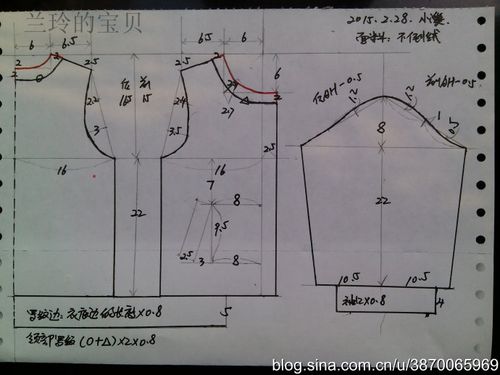 兰玲的宝贝
2015.2.28.小溪
面料:不倒绒
6 6.5
6.5 6
2 2 2.5
2.5 2
后 前
16.5 15
22
24
3
3.5
2.7
6
2
2.5
16
16
后AH-0.5
前AH-0.5
1.2
1.2
1
8
22
22
7
8
9.5
2.5 3 8
10.5 10.5
袖口×0.8
4
5
罗纹边:衣底边的长度×0.8
领部罗纹(O+△)×2×0.8
blog.sina.com.cn/u/3870065969